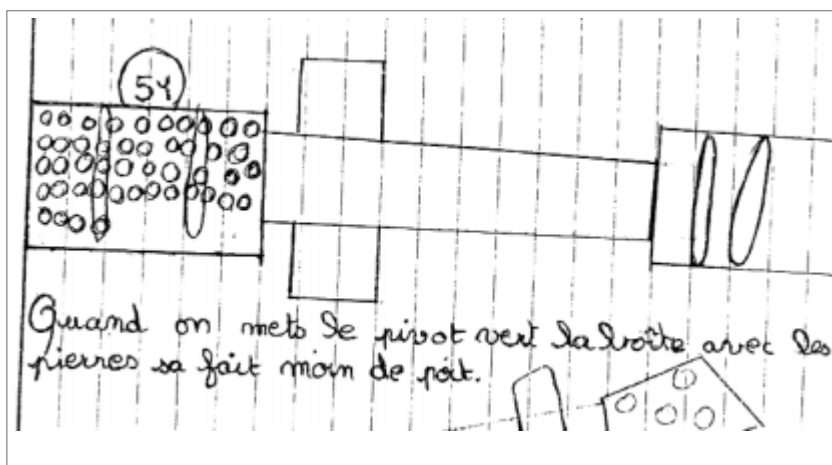 54
Quand on mets le pivot vert la boîte avec les
pierres sa fait moin de poit.